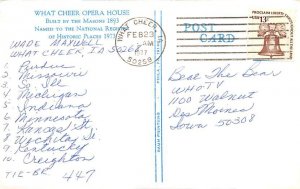 WHAT CHEER OPERA HOUSE
BUILT BY THE MASONS 1893
NAMED TO THE NATIONAL REGISTRY
OF HISTORIC PLACES 1973
WADE MAXWELL
WHAT CHEER, IA 50268
1. Purdue
2. Missouri
3. So. Ill
4. Michigan
5. Indiana
6. Minnesota
7. Kansas St.
8. Wichita St.
9. Kentucky
10. Creighton
TIE-BE 447
WHAT CHEER, IA
FEB 23
AM
50268
POST
CARD
13c
Beat The Bear
WHO TV
1100 Walnut
Des Moines
Iowa 50308